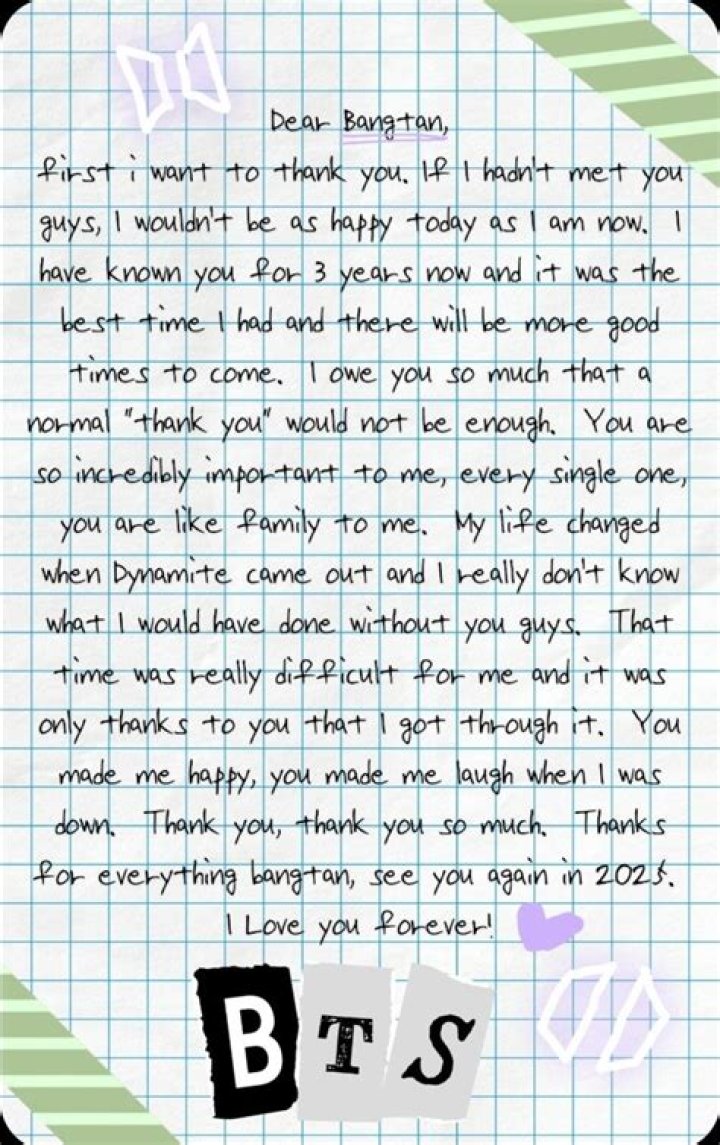 Dear Bangtan,
first i want to thank you. If I hadn't met you
guys, I wouldn't be as happy today as I am now. I
have known you for 3 years now and it was the
best time I had and there will be more good
times to come. I owe you so much that a
normal "thank you" would not be enough. You are
so incredibly important to me, every single one,
you are like family to me. My life changed
when Dynamite came out and I really don't know
what I would have done without you guys. That
time was really difficult for me and it was
only thanks to you that I got through it. You
made me happy, you made me laugh when I was
down. Thank you, thank you so much. Thanks
for everything bangtan, see you again in 2025.
I Love you forever!
BTS